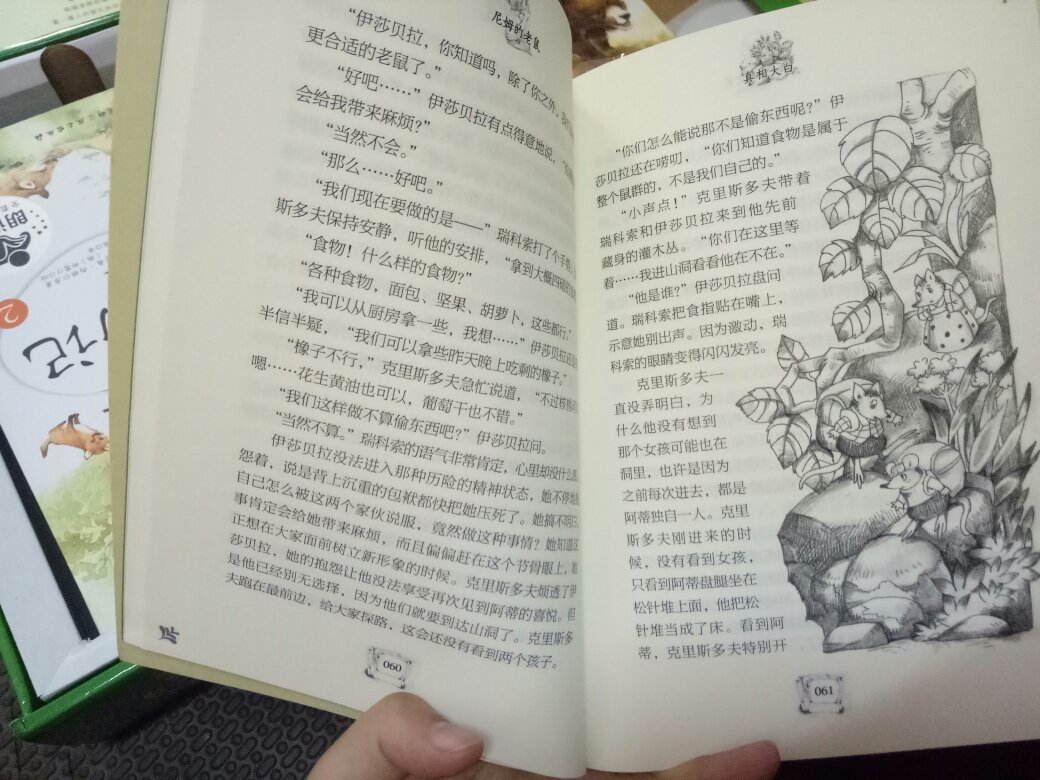 尼姆的老鼠
“伊莎贝拉，你知道吗，除了你之外，
更合适的老鼠了。”
“好吧……”伊莎贝拉有点得意地说，
会给我带来麻烦？”
“当然不会。”
“那么……好吧。”
“我们现在要做的是——”瑞科索打了个手势，
斯多夫保持安静，听他的安排，“拿到大概四
“食物！什么样的食物？”
“各种食物，面包、坚果、胡萝卜，这些都行。”
“我可以从厨房拿一些，我想……”伊莎贝拉还是
半信半疑，“我们可以拿些昨天晚上吃剩的橡子。”
“橡子不行，”克里斯多夫急忙说道，“不过核桃
嗯……花生黄油也可以，葡萄干也不错。”
“我们这样做不算偷东西吧？”伊莎贝拉问。
“当然不算。”瑞科索的语气非常肯定，心里却没什么底
伊莎贝拉没法进入那种历险的精神状态，她不停地
怨着，说是背上沉重的包袱都快把她压死了。她搞不明白
自己怎么被这两个家伙说服，竟然做这种事情？她知道这
事肯定会给她带来麻烦，而且偏偏赶在这个节骨眼上，她
正想在大家面前树立新形象的时候。克里斯多夫烦透了伊
莎贝拉，她的抱怨让他没法享受再次见到阿蒂的喜悦。但
是他已经别无选择，因为他们就要到达山洞了。克里斯多
夫跑在最前边，给大家探路，这会还没有看到两个孩子。
060
真相大白
“你们怎么能说那不是偷东西呢？”伊
莎贝拉还在唠叨，“你们知道食物是属于
整个鼠群的，不是我们自己的。”
“小声点！”克里斯多夫带着
瑞科索和伊莎贝拉来到他先前
藏身的灌木丛。“你们在这里等
着……我进山洞看看他在不在。”
“他是谁？”伊莎贝拉盘问
道。瑞科索把食指贴在嘴上，
示意她别出声。因为激动，瑞
科索的眼睛变得闪闪发亮。
克里斯多夫一
直没弄明白，为
什么他没有想到
那个女孩可能也在
洞里，也许是因为
之前每次进去，都是
阿蒂独自一人。克里
斯多夫刚进来的时
候，没有看到女孩，
只看到阿蒂盘腿坐在
松针堆上面，他把松
针堆当成了床。看到阿
蒂，克里斯多夫特别开
061
朗
2
记